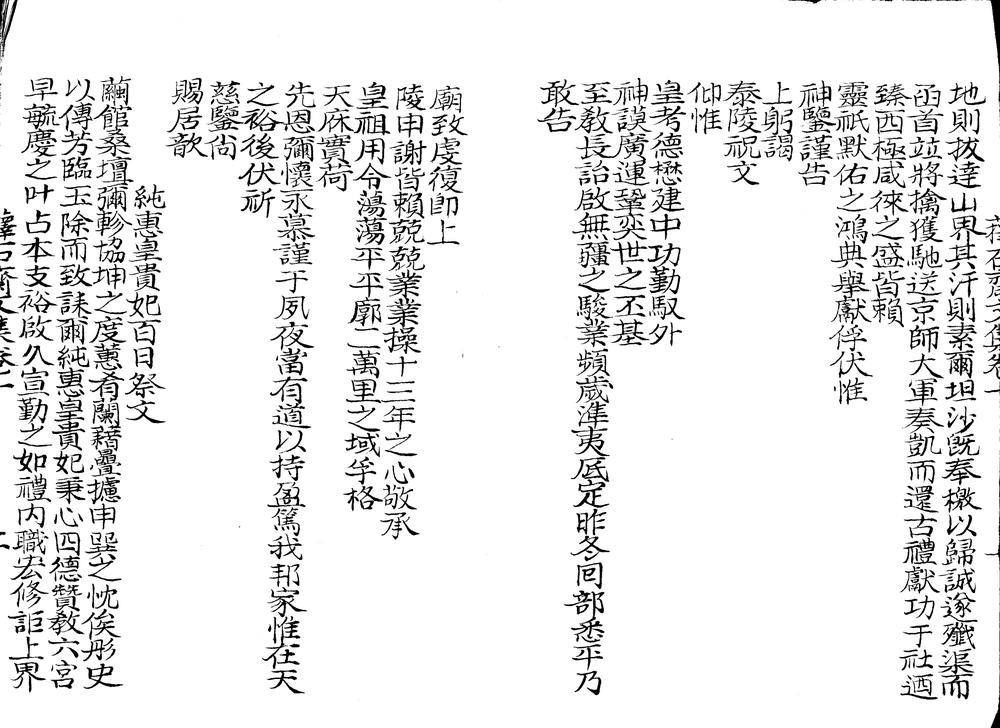 地則拔達山界其汗則素爾坦沙既奉檄以歸誠遂殲渠而
函首竝將擒獲馳送京師大軍奏凱而還古禮獻功于社迺
臻西極咸徠之盛皆賴
靈祇默佑之鴻典舉獻俘伏惟
神鑒謹告
上躬謁
泰陵祝文
仰惟
皇考德懋建中功勤馭外
神謨廣運鞏奕世之丕基
至教長詒啟無疆之駿業頻歲準夷底定昨冬回部悉平乃
敢告
廟致虔復卽上
陵申謝皆賴兢兢業業操十三年之心敬承
皇祖用令蕩蕩平平廓二萬里之域孚格
天庥實荷
先恩彌懷永慕謹于夙夜當有道以持盈篤我邦家惟在天
之裕後伏祈
慈鑒尚
賜居歆
純惠皇貴妃百日祭文
繭館桑壇彌軫協坤之度蕙肴蘭藉疊攄申巽之忱俟彤史
以傳芳臨玉除而致誄爾純惠皇貴妃秉心四德贊教六宮
早毓慶之叶占本支裕啟久宣勤之如禮內職宏修詎上界
蘀石齋文集卷二